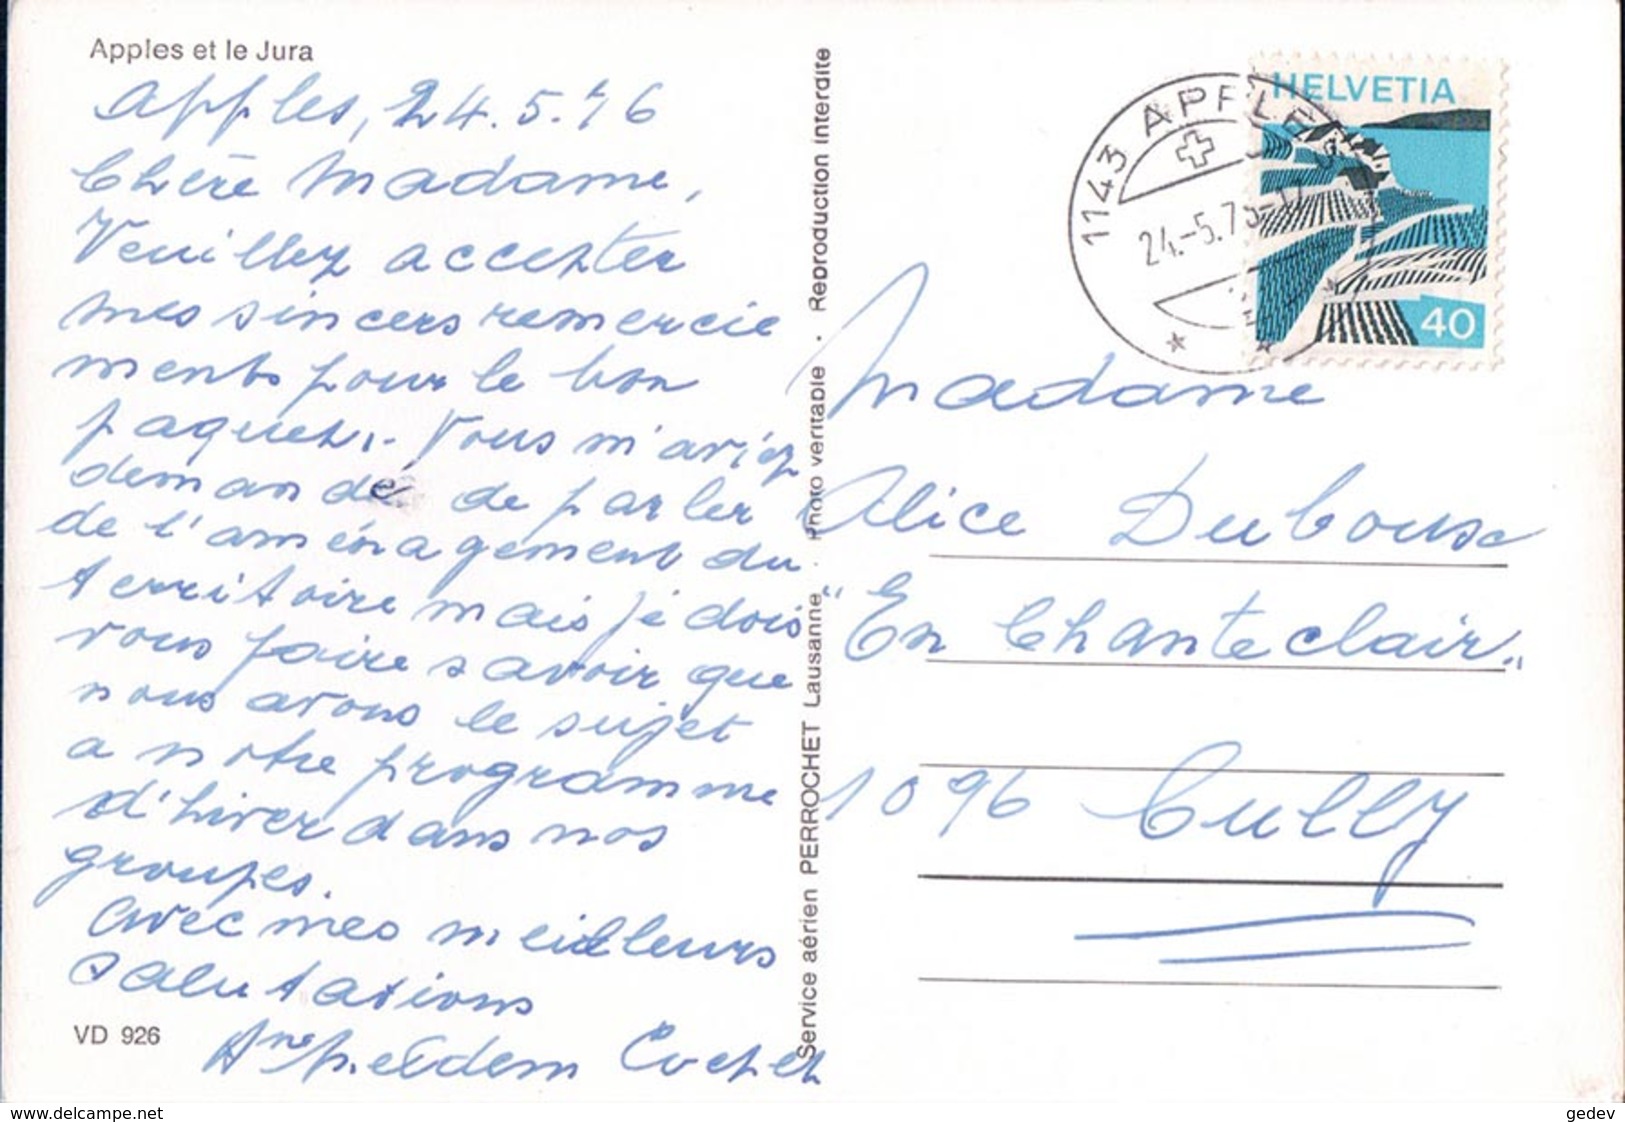 Apples et le Jura
Apples, 24.5.76
Chère Madame,
Veuillez accepter
mes sincers remercie
ments pour le bon
paquet.- Vous m'aviez
demandé de parler
de l'aménagement du
territoire mais je dois
vous faire savoir que
nous avons le sujet
a notre programme
d'hiver dans nos
groupes.
Avec mes meilleurs
salutations
Cochet
VD 926
Service aérien PERROCHET Lausanne. Photo veritable · Reproduction interdite
1143 APPLES
24.-5.76-17
HELVETIA
40
Madame
Alice Duboux
"En Chanteclair"
1096 Cully
www.delcampe.net
gedev